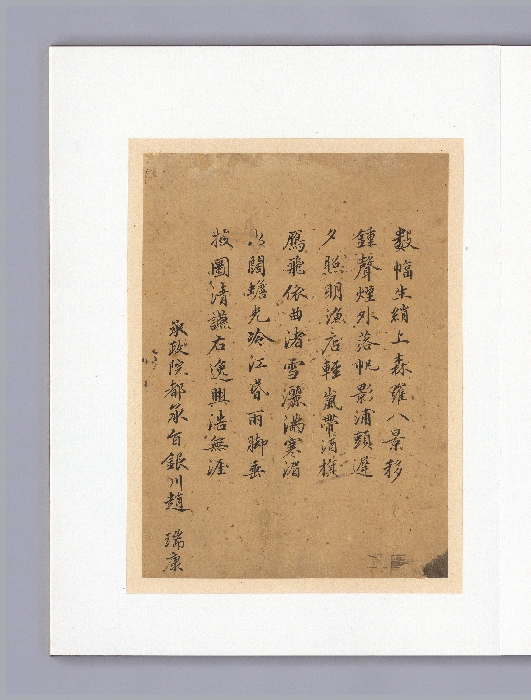 數幅生綃上森羅八景移
鍾聲煙外落帆影浦頭遲
夕照明漁店輕嵐帶酒旗
鴈飛依曲渚雪灑滿寒湄
闊蟾光冷江昏雨脚垂
披圖清讌右逸興浩無涯
承政院都承旨銀川趙 瑞康